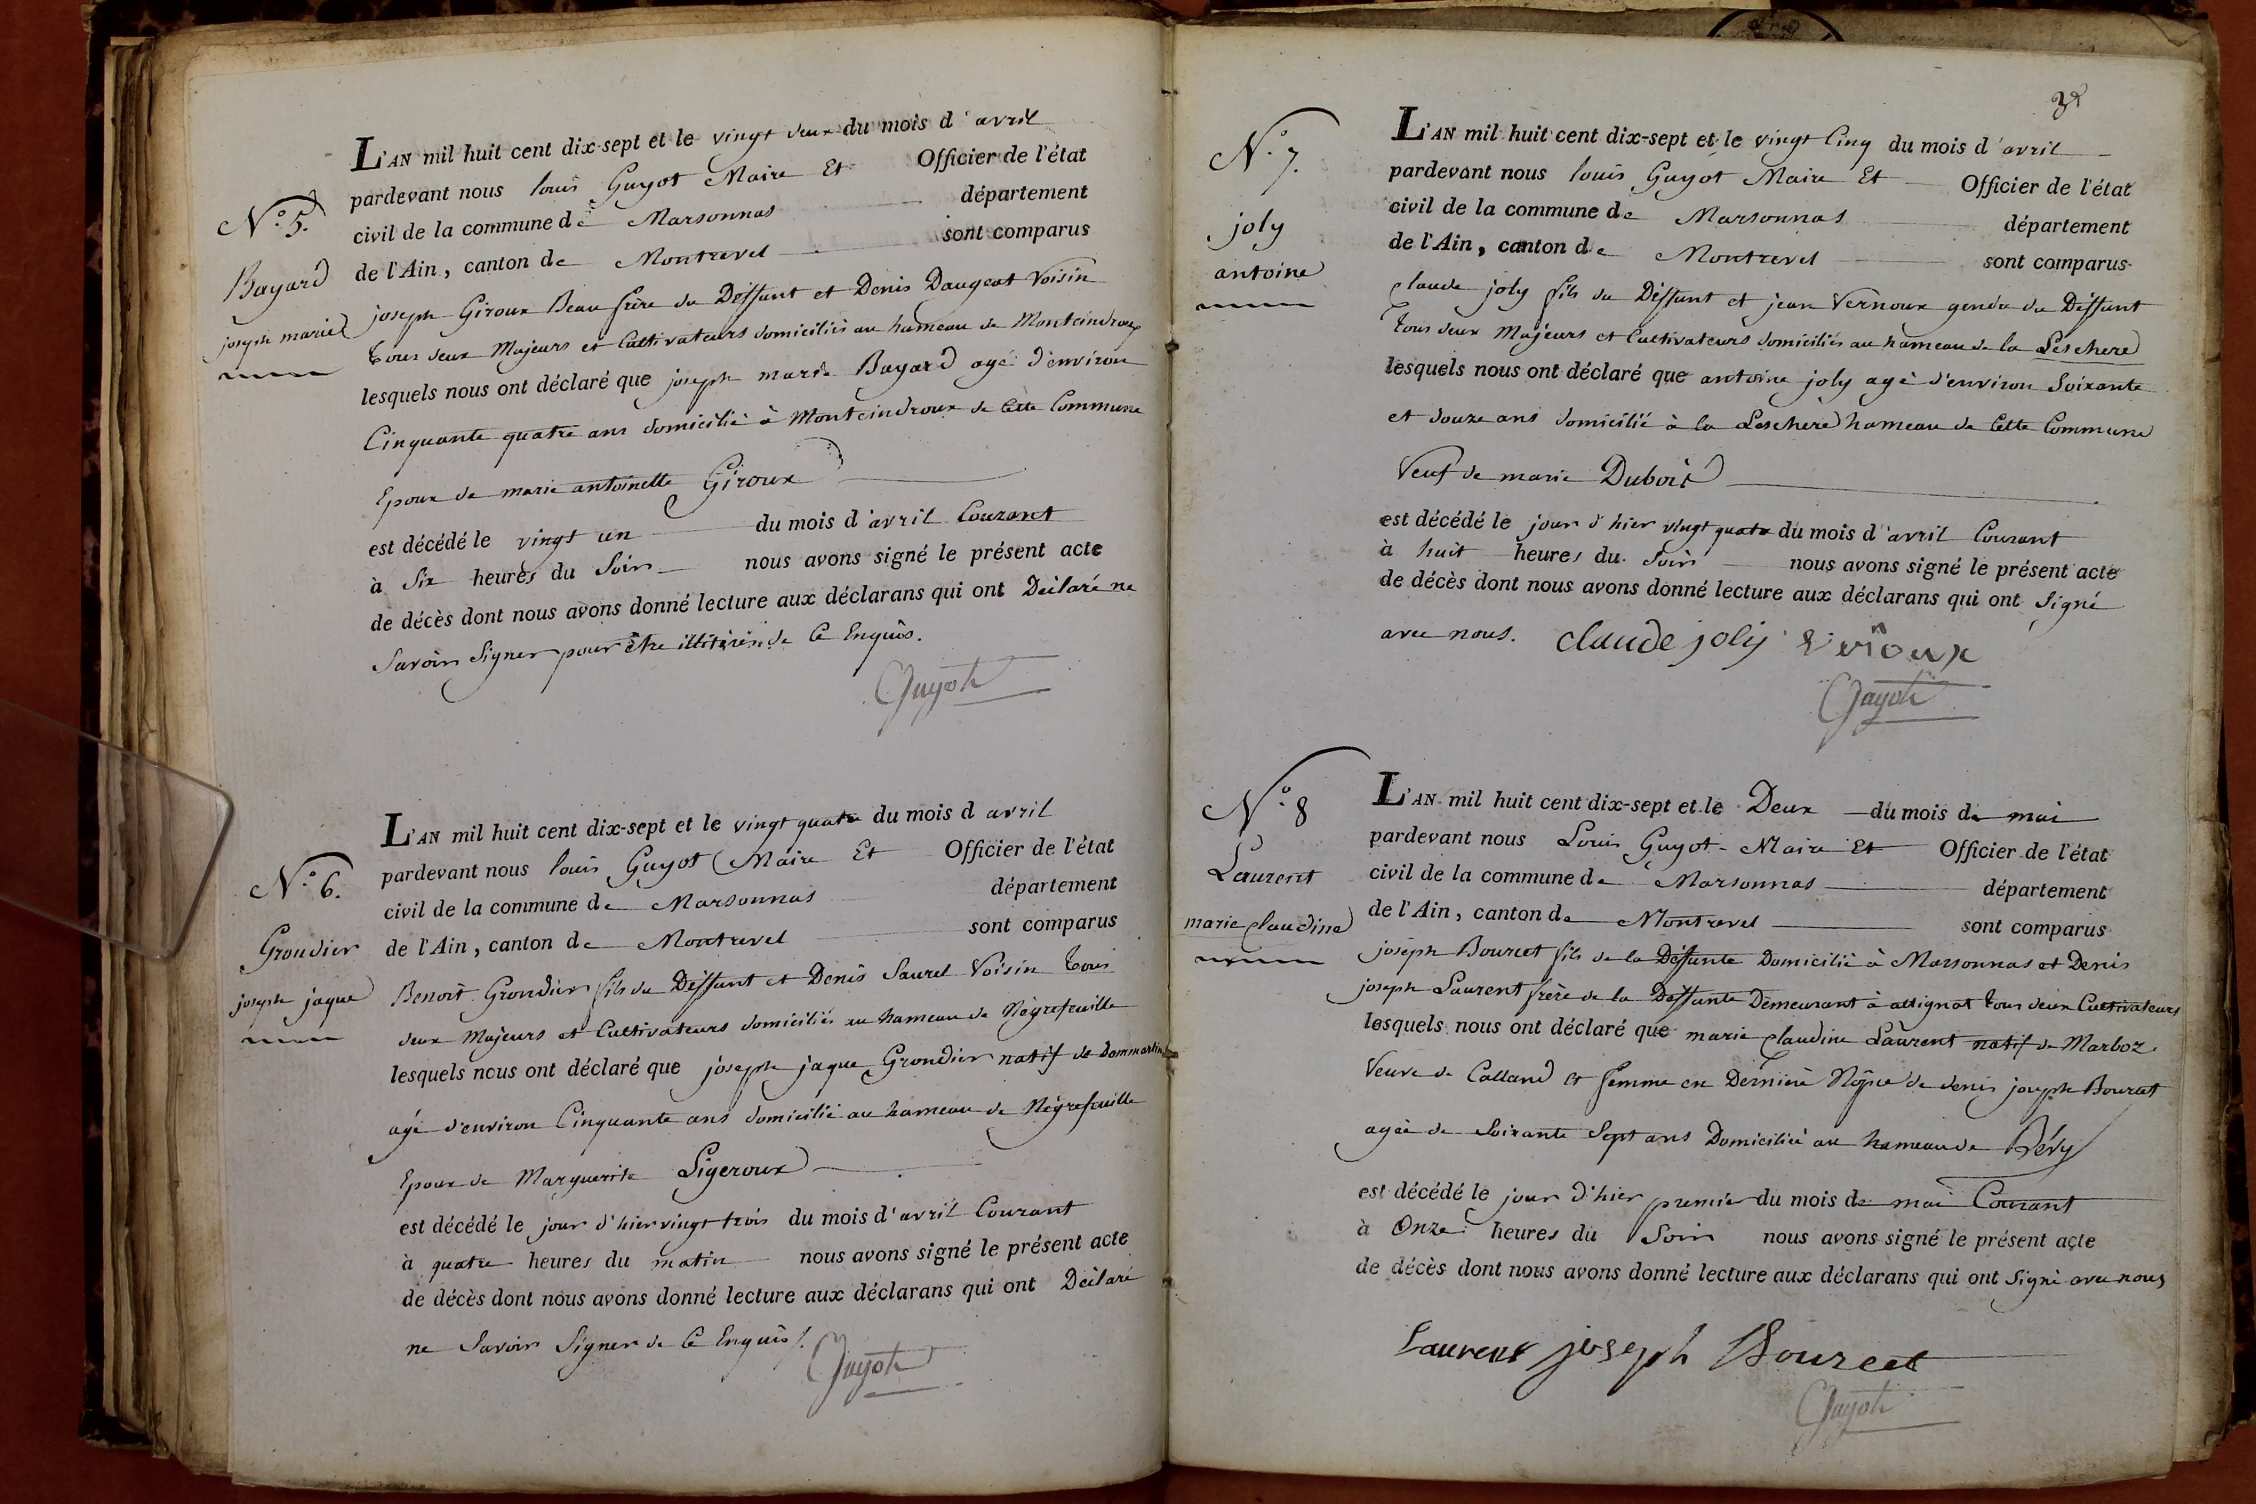 N.° 5.
Bayard
joseph marie
L'AN mil huit cent dix-sept et le vingt deux du mois d'avril
pardevant nous louis Guyot Maire Et Officier de l'état
civil de la commune de Marsonnas département
de l'Ain, canton de Montrevel sont comparus
joseph Giroux Beau frère du Deffunt et Denis Daugeat Voisin
tous deux Majeurs et Cultivateurs domiciliés au hameau de Montcindroux
lesquels nous ont déclaré que joseph marie Bayard agé d'environ
Cinquante quatre ans domicilié à Montcindroux de Cette Commune
Epoux de marie antoinette Giroux
est décédé le vingt un du mois d'avril Courant
à Six heures du Soir nous avons signé le présent acte
de décès dont nous avons donné lecture aux déclarans qui ont Déclaré ne
Savoir Signer pour être illitérés de Ce Enquis.
Guyot
N.° 6.
Grondier
joseph jaque
L'AN mil huit cent dix-sept et le vingt quatre du mois d avril
pardevant nous louis Guyot Maire Et Officier de l'état
civil de la commune de Marsonnas département
de l'Ain, canton de Montrevel sont comparus
Benoit Grondier fils du Deffunt et Denis Saurel Voisin tous
deux Majeurs et Cultivateurs domiciliés au hameau de Négrefeuille
lesquels nous ont déclaré que joseph jaque Grondier natif de dommartin
agé d'environ Cinquante ans domicilié au hameau de Négrefeuille
Epoux de Marguerite Ligeroux
est décédé le jour d'hier vingt trois du mois d'avril Courant
à quatre heures du matin nous avons signé le présent acte
de décès dont nous avons donné lecture aux déclarans qui ont Déclaré
ne Savoir Signer de Ce Enquis.
Guyot
3
N.° 7.
joly
antoine
L'AN mil huit cent dix-sept et le vingt Cinq du mois d'avril
pardevant nous louis Guyot Maire Et Officier de l'état
civil de la commune de Marsonnas département
de l'Ain, canton de Montrevel sont comparus
claude joly fils du Deffunt et jean Vernoux gendre du Deffunt
tous deux Majeurs et Cultivateurs domiciliés au hameau de la Leschere
lesquels nous ont déclaré que antoine joly agé d'environ Soixante
et douze ans domicilié à la Leschere hameau de Cette Commune
Veuf de marie Dubois
est décédé le jour d'hier vingt quatre du mois d'avril Courant
à huit heures du Soir nous avons signé le présent acte
de décès dont nous avons donné lecture aux déclarans qui ont Signé
avec nous. claude joly
Guyot
N.° 8
Laurent
marie claudine
L'AN mil huit cent dix-sept et le Deux du mois de mai
pardevant nous Louis Guyot Maire Et Officier de l'état
civil de la commune de Marsonnas département
de l'Ain, canton de Montrevel sont comparus
joseph Bourcet fils de la Deffunte Domicilié à Marsonnas et Denis
joseph Laurent frère de la Deffunte Demeurant à attignat tous deux Cultivateurs
lesquels nous ont déclaré que marie claudine Laurent natif de Marboz
Veuve de Calland et femme en Dernière Nôpce de denis joseph Bourcet
agée de Soixante Sept ans Domiciliée au hameau de
est décédé le jour d'hier premier du mois de mai Courant
à Onze heures du Soir nous avons signé le présent acte
de décès dont nous avons donné lecture aux déclarans qui ont Signé avec nous
Laurent joseph Bourcet
Guyot